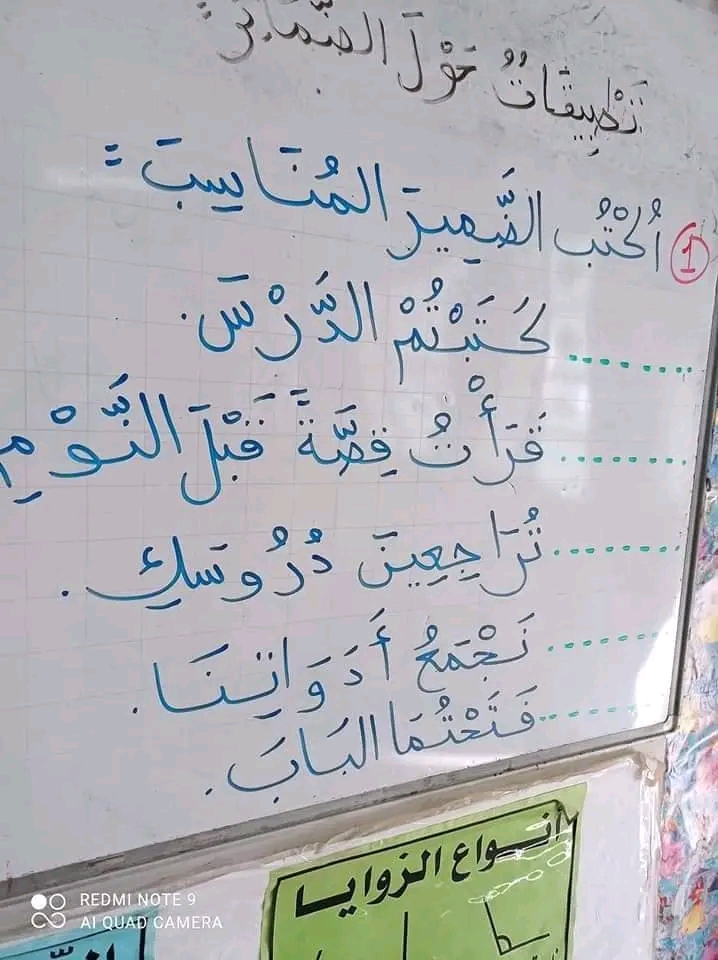 تَطْبِيقَاتٌ حَوْلَ الضَّمَائِرِ:
1 اُكْتُبِ الضَّمِيرَ المُنَاسِبَ:
....... كَتَبْتُمْ الدَّرْسَ.
....... قَرَأْتُ قِصَّةً قَبْلَ النَّوْمِ
....... تُرَاجِعِينَ دُرُوسَكِ.
....... نَجْمَعُ أَدَوَاتِنَا.
....... فَتَحْتُمَا البَابَ.
أنواع الزوايا
REDMI NOTE 9
AI QUAD CAMERA